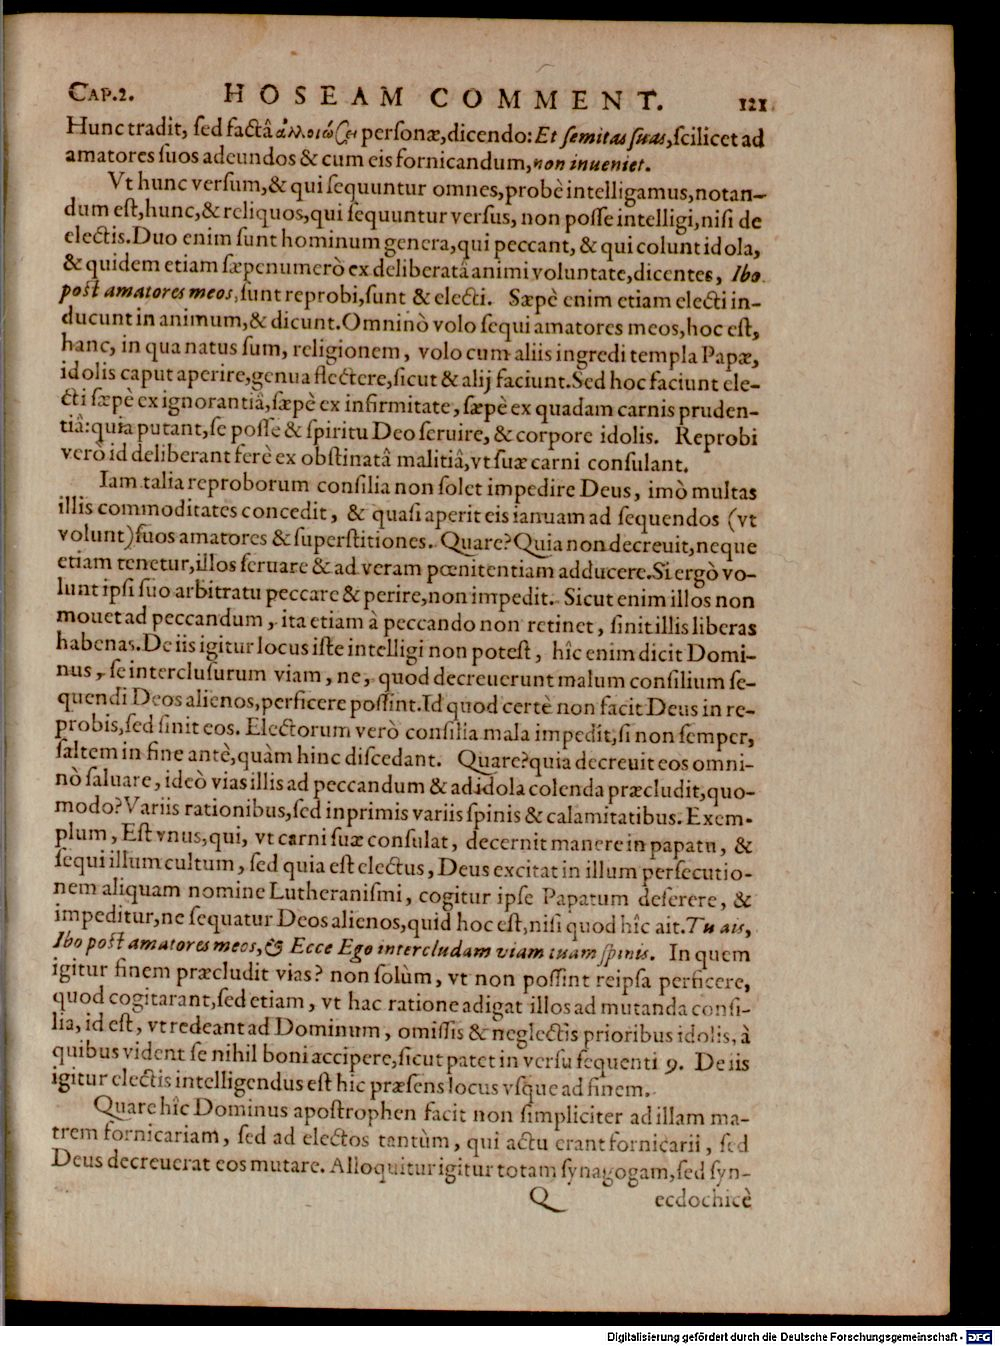 CAP.2. HOSEAM COMMENT. 121
Hunc tradit, sed factâ ἀλλοιώσει personæ, dicendo: Et semitas suas, scilicet ad
amatores suos adeundos & cum eis fornicandum, non inueniet.
Vt hunc versum, & qui sequuntur omnes, probè intelligamus, notan-
dum est, hunc, & reliquos, qui sequuntur versus, non posse intelligi, nisi de
electis. Duo enim sunt hominum genera, qui peccant, & qui colunt idola,
& quidem etiam sæpenumerò ex deliberatâ animi voluntate, dicentes, Ibo
post amatores meos, sunt reprobi, sunt & electi. Sæpè enim etiam electi in-
ducunt in animum, & dicunt. Omninò volo sequi amatores meos, hoc est,
hanc, in qua natus sum, religionem, volo cum aliis ingredi templa Papæ,
idolis caput aperire, genua flectere, sicut & alij faciunt. Sed hoc faciunt ele-
cti sæpè ex ignorantiâ, sæpè ex infirmitate, sæpè ex quadam carnis pruden-
tiâ: quia putant, se posse & spiritu Deo seruire, & corpore idolis. Reprobi
verò id deliberant ferè ex obstinatâ malitiâ, vt suæ carni consulant.
Iam talia reproborum consilia non solet impedire Deus, imò multas
illis commoditates concedit, & quasi aperit eis ianuam ad sequendos (vt
volunt) suos amatores & superstitiones. Quare? Quia non decreuit, neque
etiam tenetur, illos seruare & ad veram pœnitentiam adducere. Si ergò vo-
lunt ipsi suo arbitratu peccare & perire, non impedit. Sicut enim illos non
mouet ad peccandum, ita etiam à peccando non retinet, sinit illis liberas
habenas. De iis igitur locus iste intelligi non potest, hîc enim dicit Domi-
nus, se interclusurum viam, ne, quod decreuerunt malum consilium se-
quendi Deos alienos, perficere possint. Id quod certè non facit Deus in re-
probis, sed sinit eos. Electorum verò consilia mala impedit, si non semper,
saltem in fine antè, quàm hinc discedant. Quare? quia decreuit eos omni-
nò saluare, ideò vias illis ad peccandum & ad idola colenda præcludit, quo-
modo? Variis rationibus, sed inprimis variis spinis & calamitatibus. Exem-
plum, Est vnus, qui, vt carni suæ consulat, decernit manere in papatu, &
sequi illum cultum, sed quia est electus, Deus excitat in illum persecutio-
nem aliquam nomine Lutheranismi, cogitur ipse Papatum deserere, &
impeditur, ne sequatur Deos alienos, quid hoc est, nisi quod hîc ait. Tu ais,
Ibo post amatores meos, & Ecce Ego intercludam viam tuam spinis. In quem
igitur finem præcludit vias? non solùm, vt non possint reipsa perficere,
quod cogitarant, sed etiam, vt hac ratione adigat illos ad mutanda consi-
lia, id est, vt redeant ad Dominum, omissis & neglectis prioribus idolis, à
quibus vident se nihil boni accipere, sicut patet in versu sequenti 9. De iis
igitur electis intelligendus est hic præsens locus vsque ad finem.
Quare hîc Dominus apostrophen facit non simpliciter ad illam ma-
trem fornicariam, sed ad electos tantùm, qui actu erant fornicarii, sed
Deus decreuerat eos mutare. Alloquitur igitur totam synagogam, sed syn-
Q ecdochicè
Digitalisierung gefördert durch die Deutsche Forschungsgemeinschaft - DFG